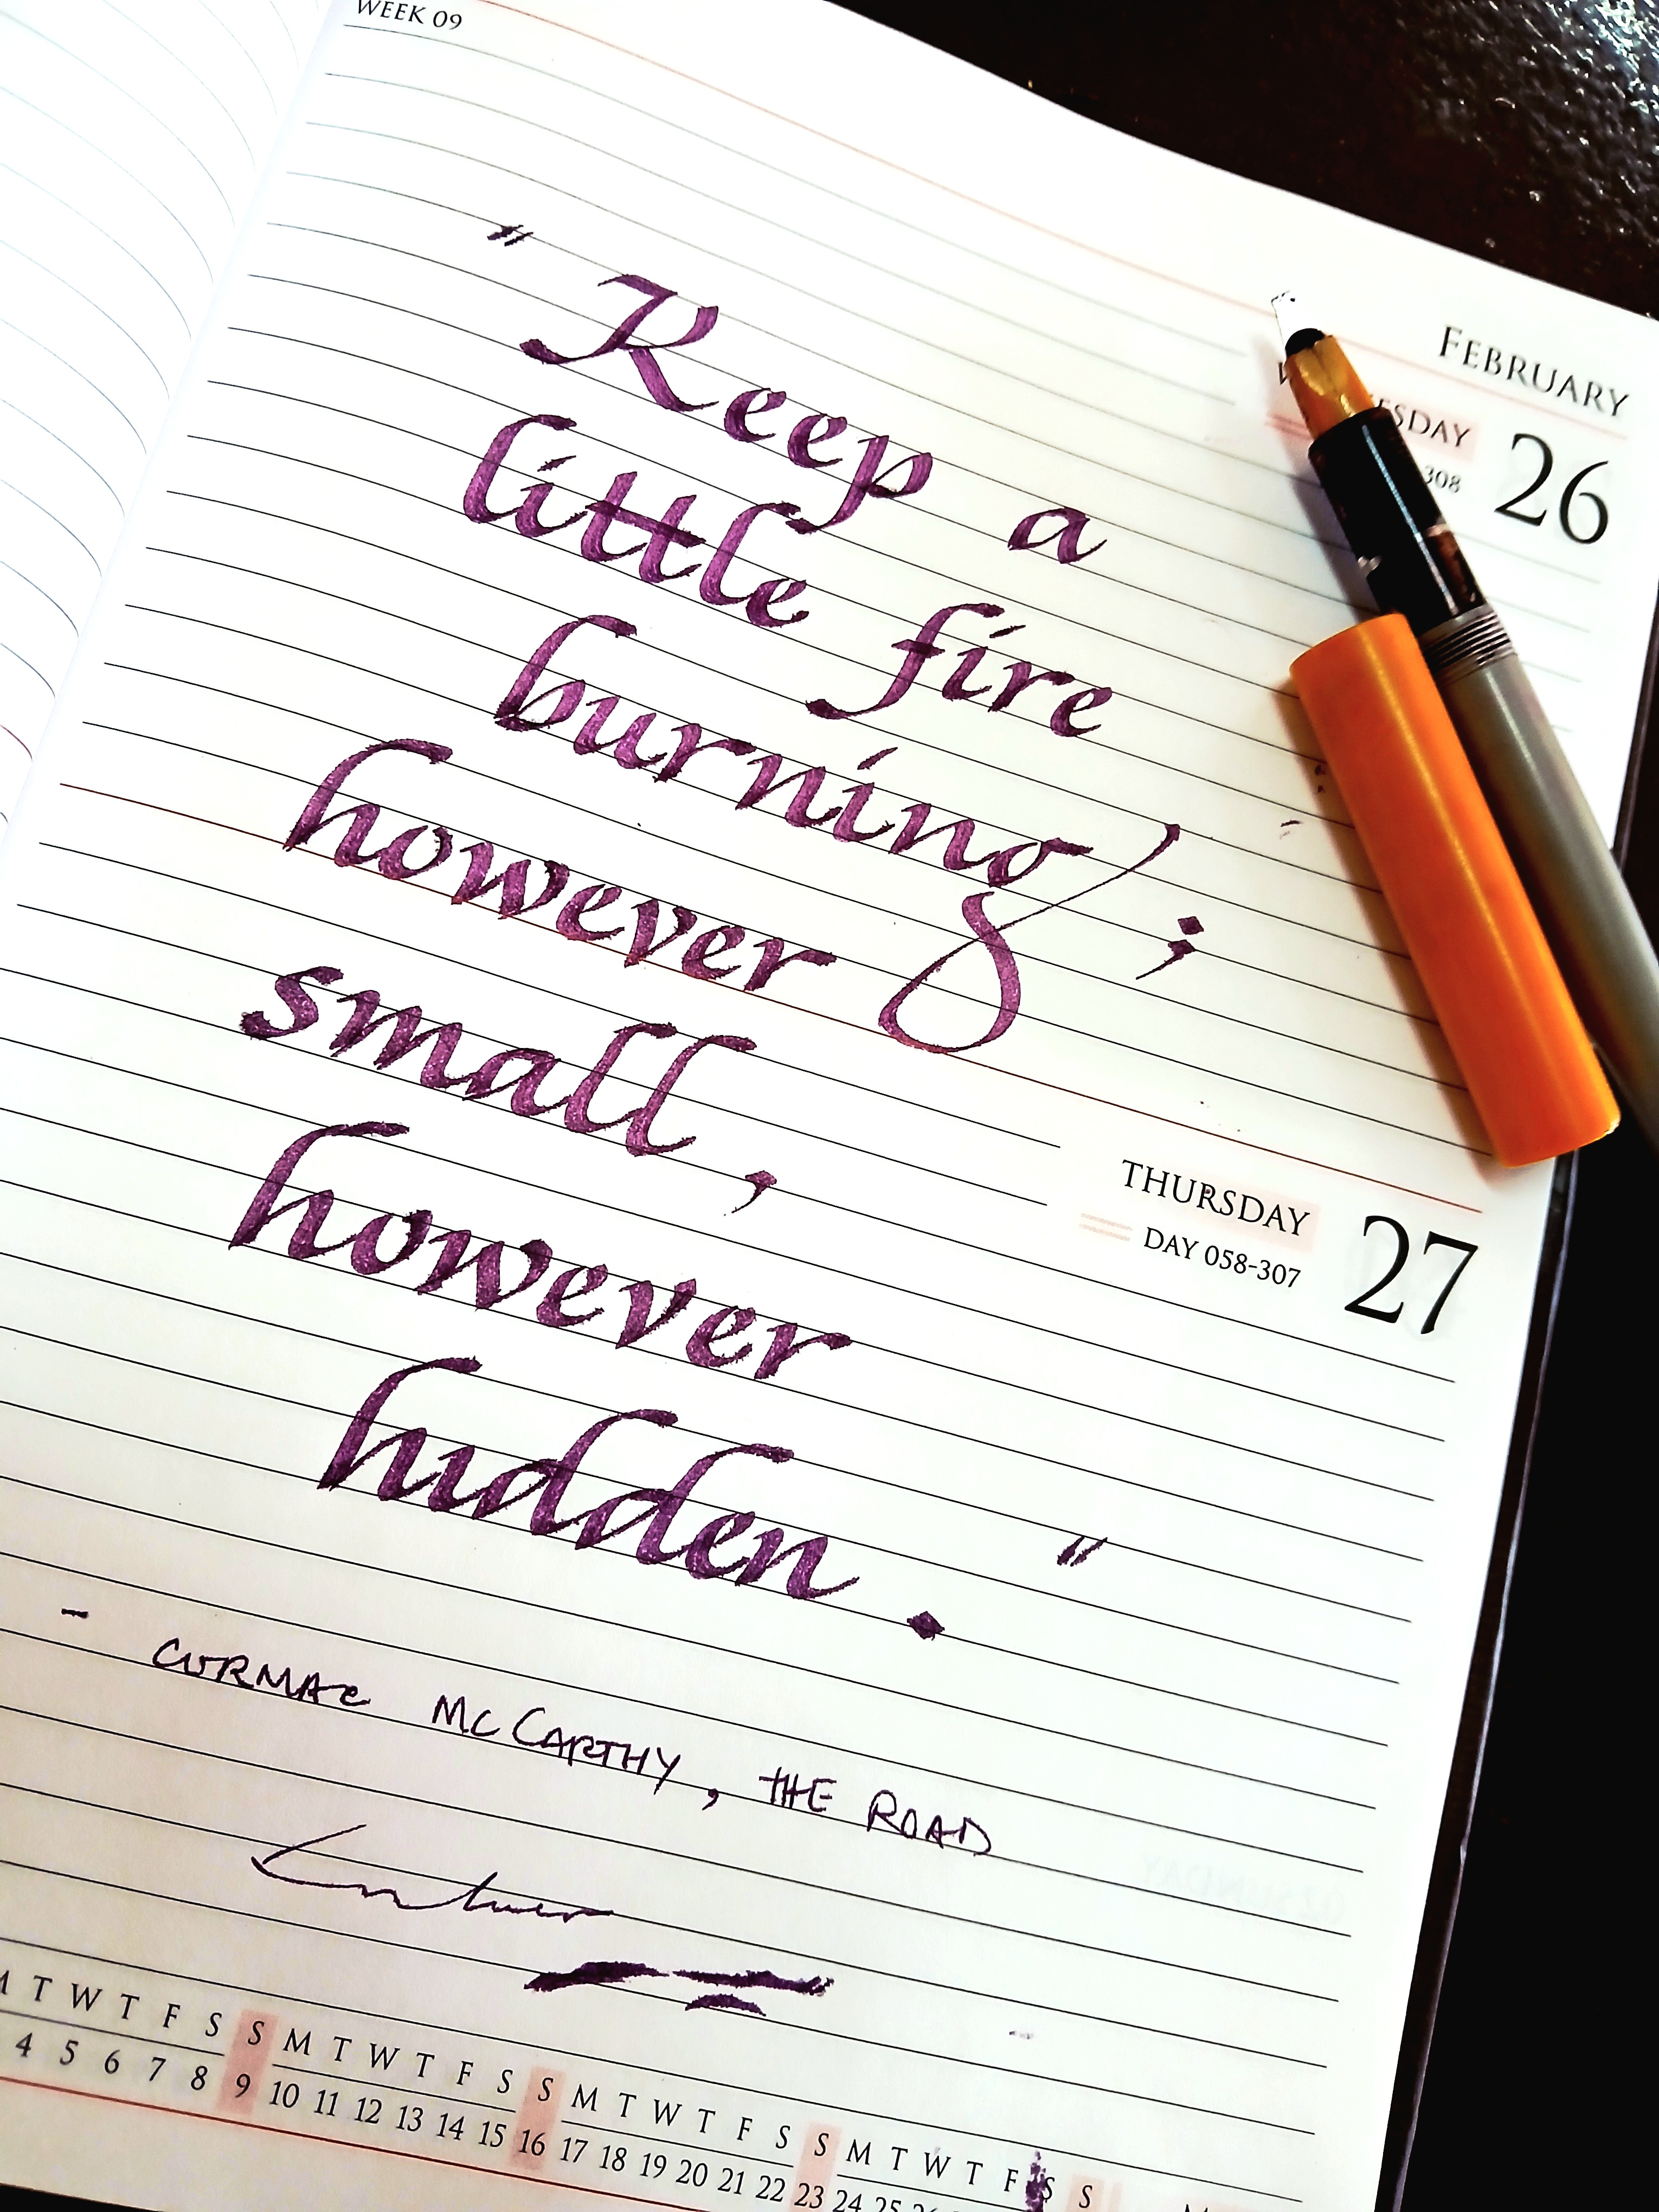 WEEK 09
FEBRUARY
26
308
" Keep a
little fire
burning ;
however
small ,
THURSDAY
DAY 058-307
27
however
hidden . "
- CORMAC MCCARTHY, THE ROAD
T W T F S S M T W T F S S M T W T F S S M T W T F S S
4 5 6 7 8 9 10 11 12 13 14 15 16 17 18 19 20 21 22 23 24 25